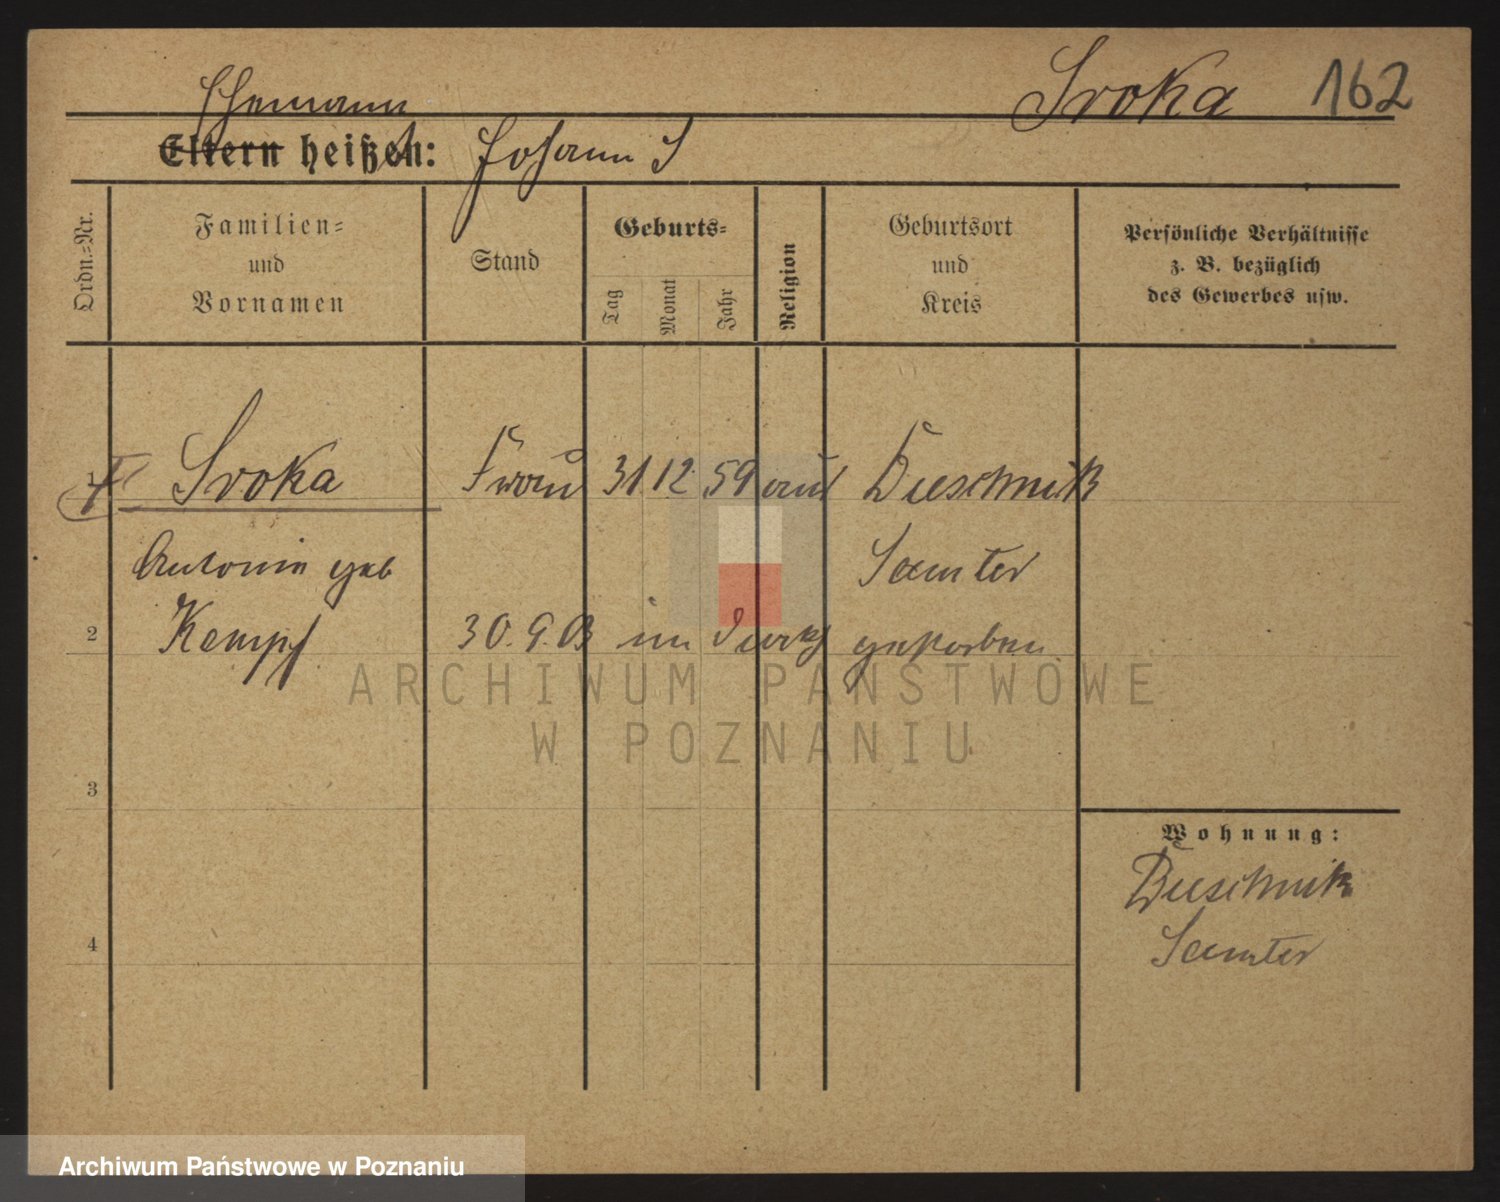 Sroka 162
Ehemann
Eltern heißen: Johann S
Ordn.=Nr.
Familien=
und
Vornamen
Stand
Geburts=
Tag
Monat
Jahr
Religion
Geburtsort
und
Kreis
Persönliche Verhältnisse
z. B. bezüglich
des Gewerbes usw.
1 Sroka Frau 31 12 59 Duschnik
Antonie geb Samter
2 Kempf 30. 9. 03 im gestorben
ARCHIWUM PAŃSTWOWE
W POZNANIU
3
Wohnung:
Duschnik
4 Samter
Archiwum Państwowe w Poznaniu